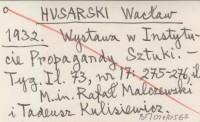 HUSARSKI Wacław
1932. Wystawa w Instytu-
cie Propagandy Sztuki. –
Tyg. Il. 73, nr 17: 275-276, il.
M.in. Rafał Malczewski
i Tadeusz Kulisiewicz.